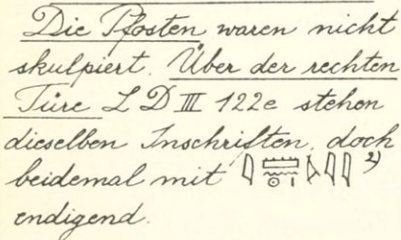 Die Pfosten waren nicht
skulpiert. Über der rechten
Türe L D III 122e stehen
dieselben Inschriften, doch
beidemal mit ²)
endigend.